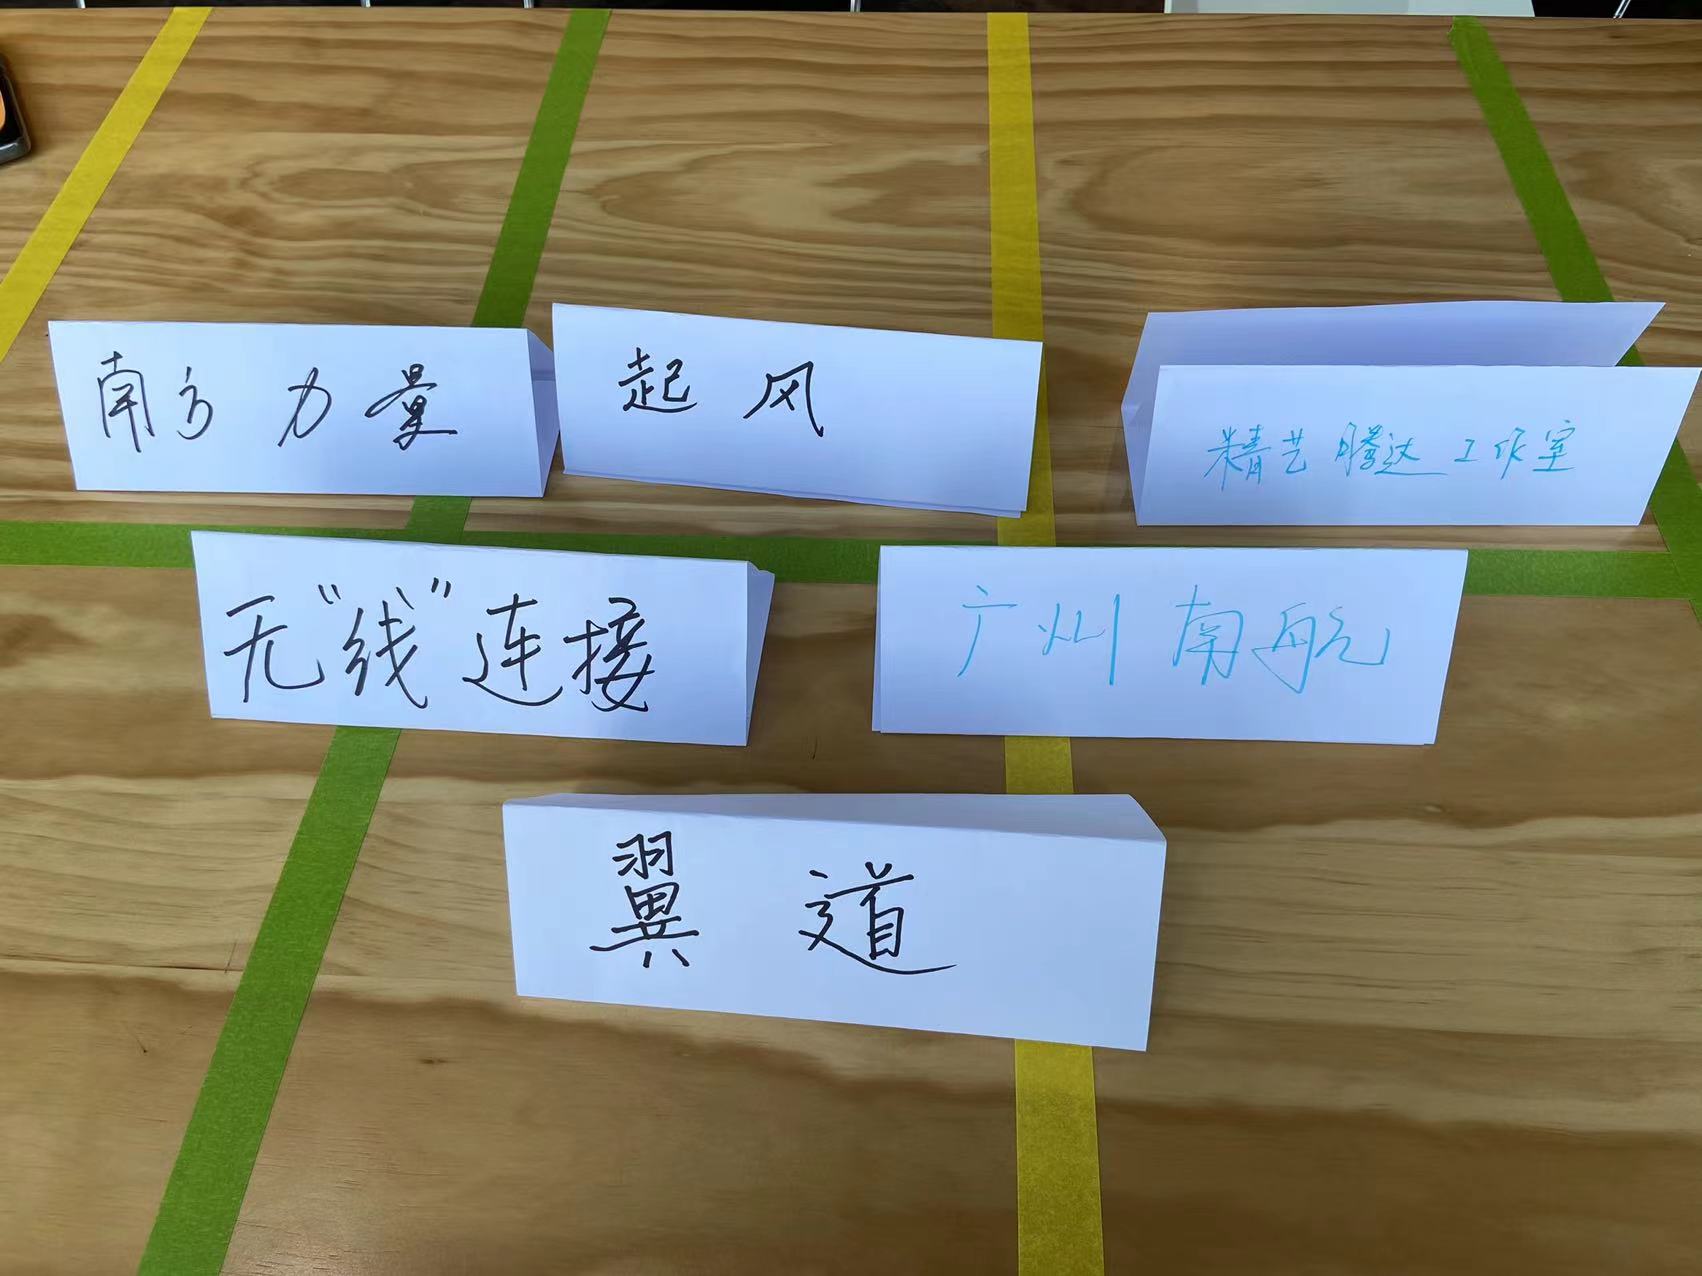 南方力量
起风
精艺腾达工作室
无“线”连接
广州南航
翼道